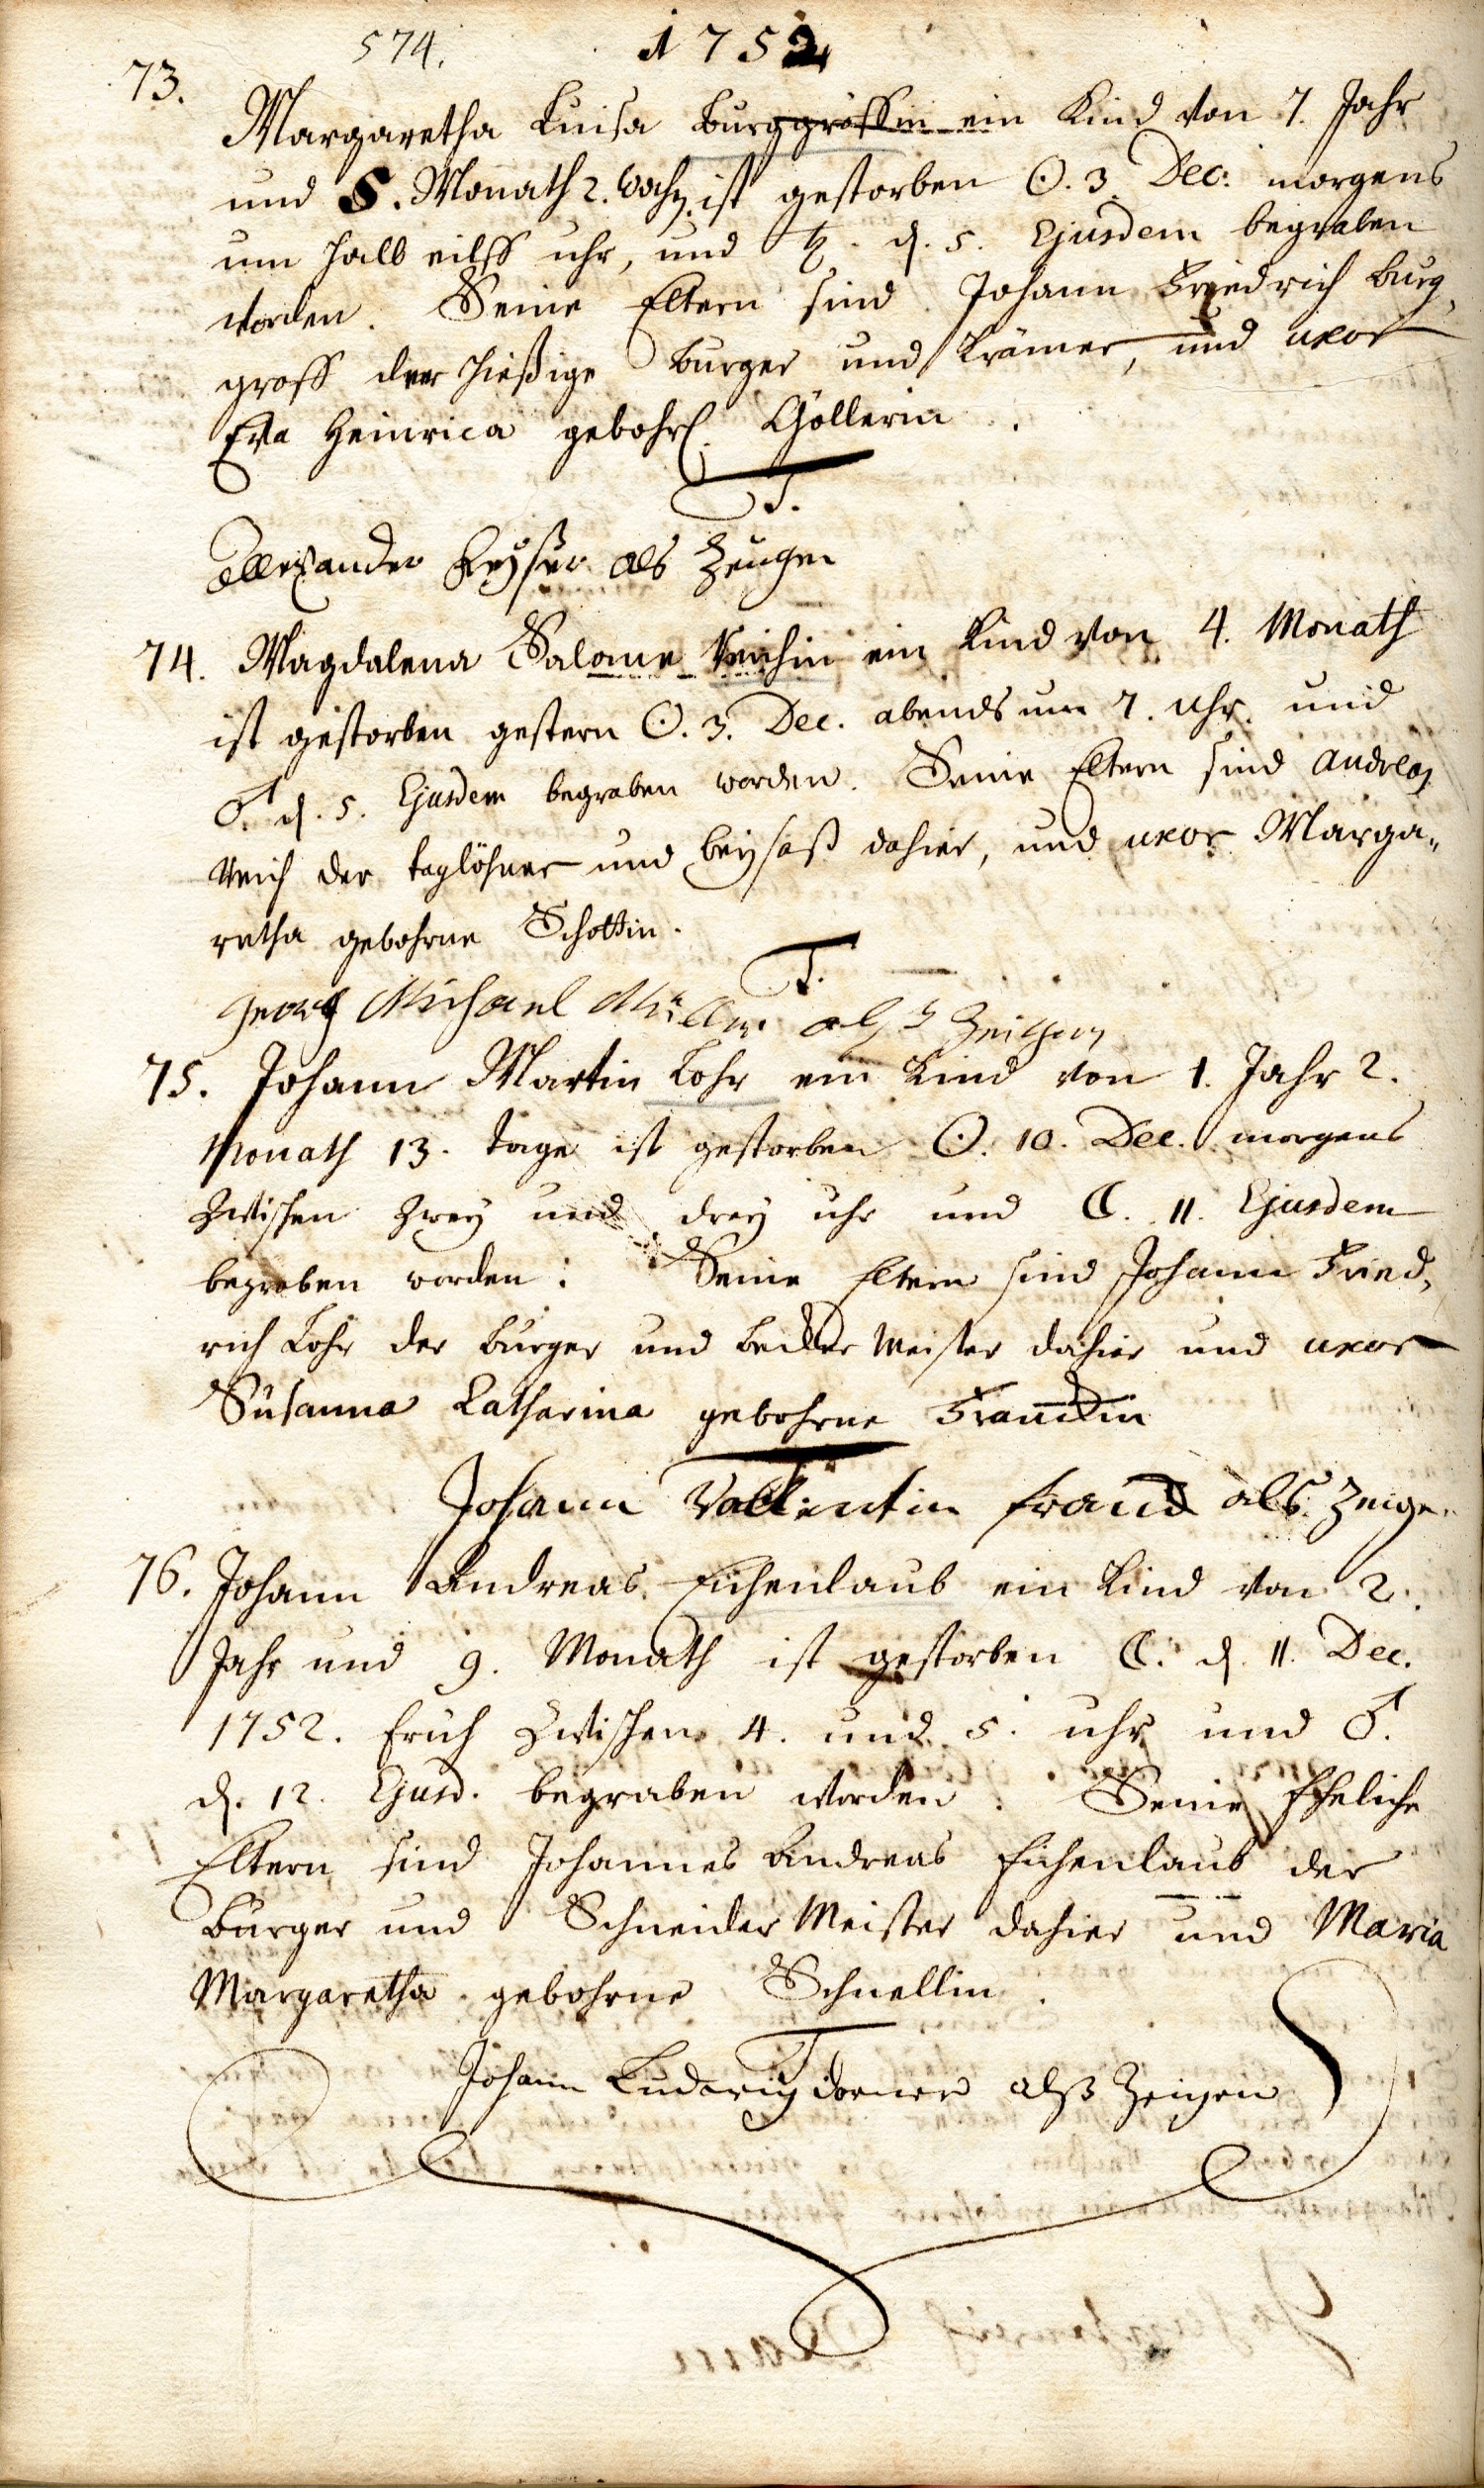 574. 1752
73.
Margaretha Luisa Burggröffin ein Kind von 7. Jahr
und 8. Monath 2. Woch. ist gestorben ☉. 3 Dec. morgens
um halb eilff uhr, und d. 5. Ejusdem begraben
worden. Seine Eltern sind Johann Friedrich Burg,
groff der hießige burger und Krämer, und uxor
Eva Heinrica gebohr. Göllerin.
T.
Allexander Keyser als Zeugen
74. Magdalena Salome Reichin ein Kind von 4. Monath
ist gestorben gestern ☉. 3. Dec. abends um 7. uhr. und
♂. d. 5. Ejusdem begraben worden. Seine Eltern sind Andreas
Reich der taglöhner und beysaß dahier, und uxor Marga„
retha gebohrne Schottin.
T.
Georg Michael Müller alß Zeigen
75. Johann Martin Lohr ein Kind von 1. Jahr 2.
Monath 13. tage ist gestorben ☉. 10. Dec. morgens
Zwischen Zwey und drey uhr und ☾. 11. Ejusdem
begraben worden: Seine Eltern sind Johann Fried,
rich Lohr der burger und becker Meister dahier und uxor
Susanna Catharina gebohrne Franckin
Johann Vallentin franck als Zeige.
76. Johann Andreas Eichenlaub ein Kind von 2.
Jahr und 9. Monath ist gestorben ☾. d. 11. Dec.
1752. früh Zwischen 4. und 5. uhr und ♂.
d. 12. Ejusd. begraben worden. Seine Eheliche
Eltern sind Johannes Andreas Eichenlaub der
burger und Schneider Meister dahier und Maria
Margaretha gebohrne Schnellin.
T
Johann Ludwig Dorner alß Zeigen